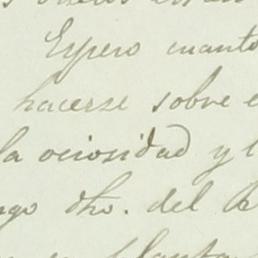 Espero cuanto
hacerse sobre e
la ociosidad y l
ngo dho. del R